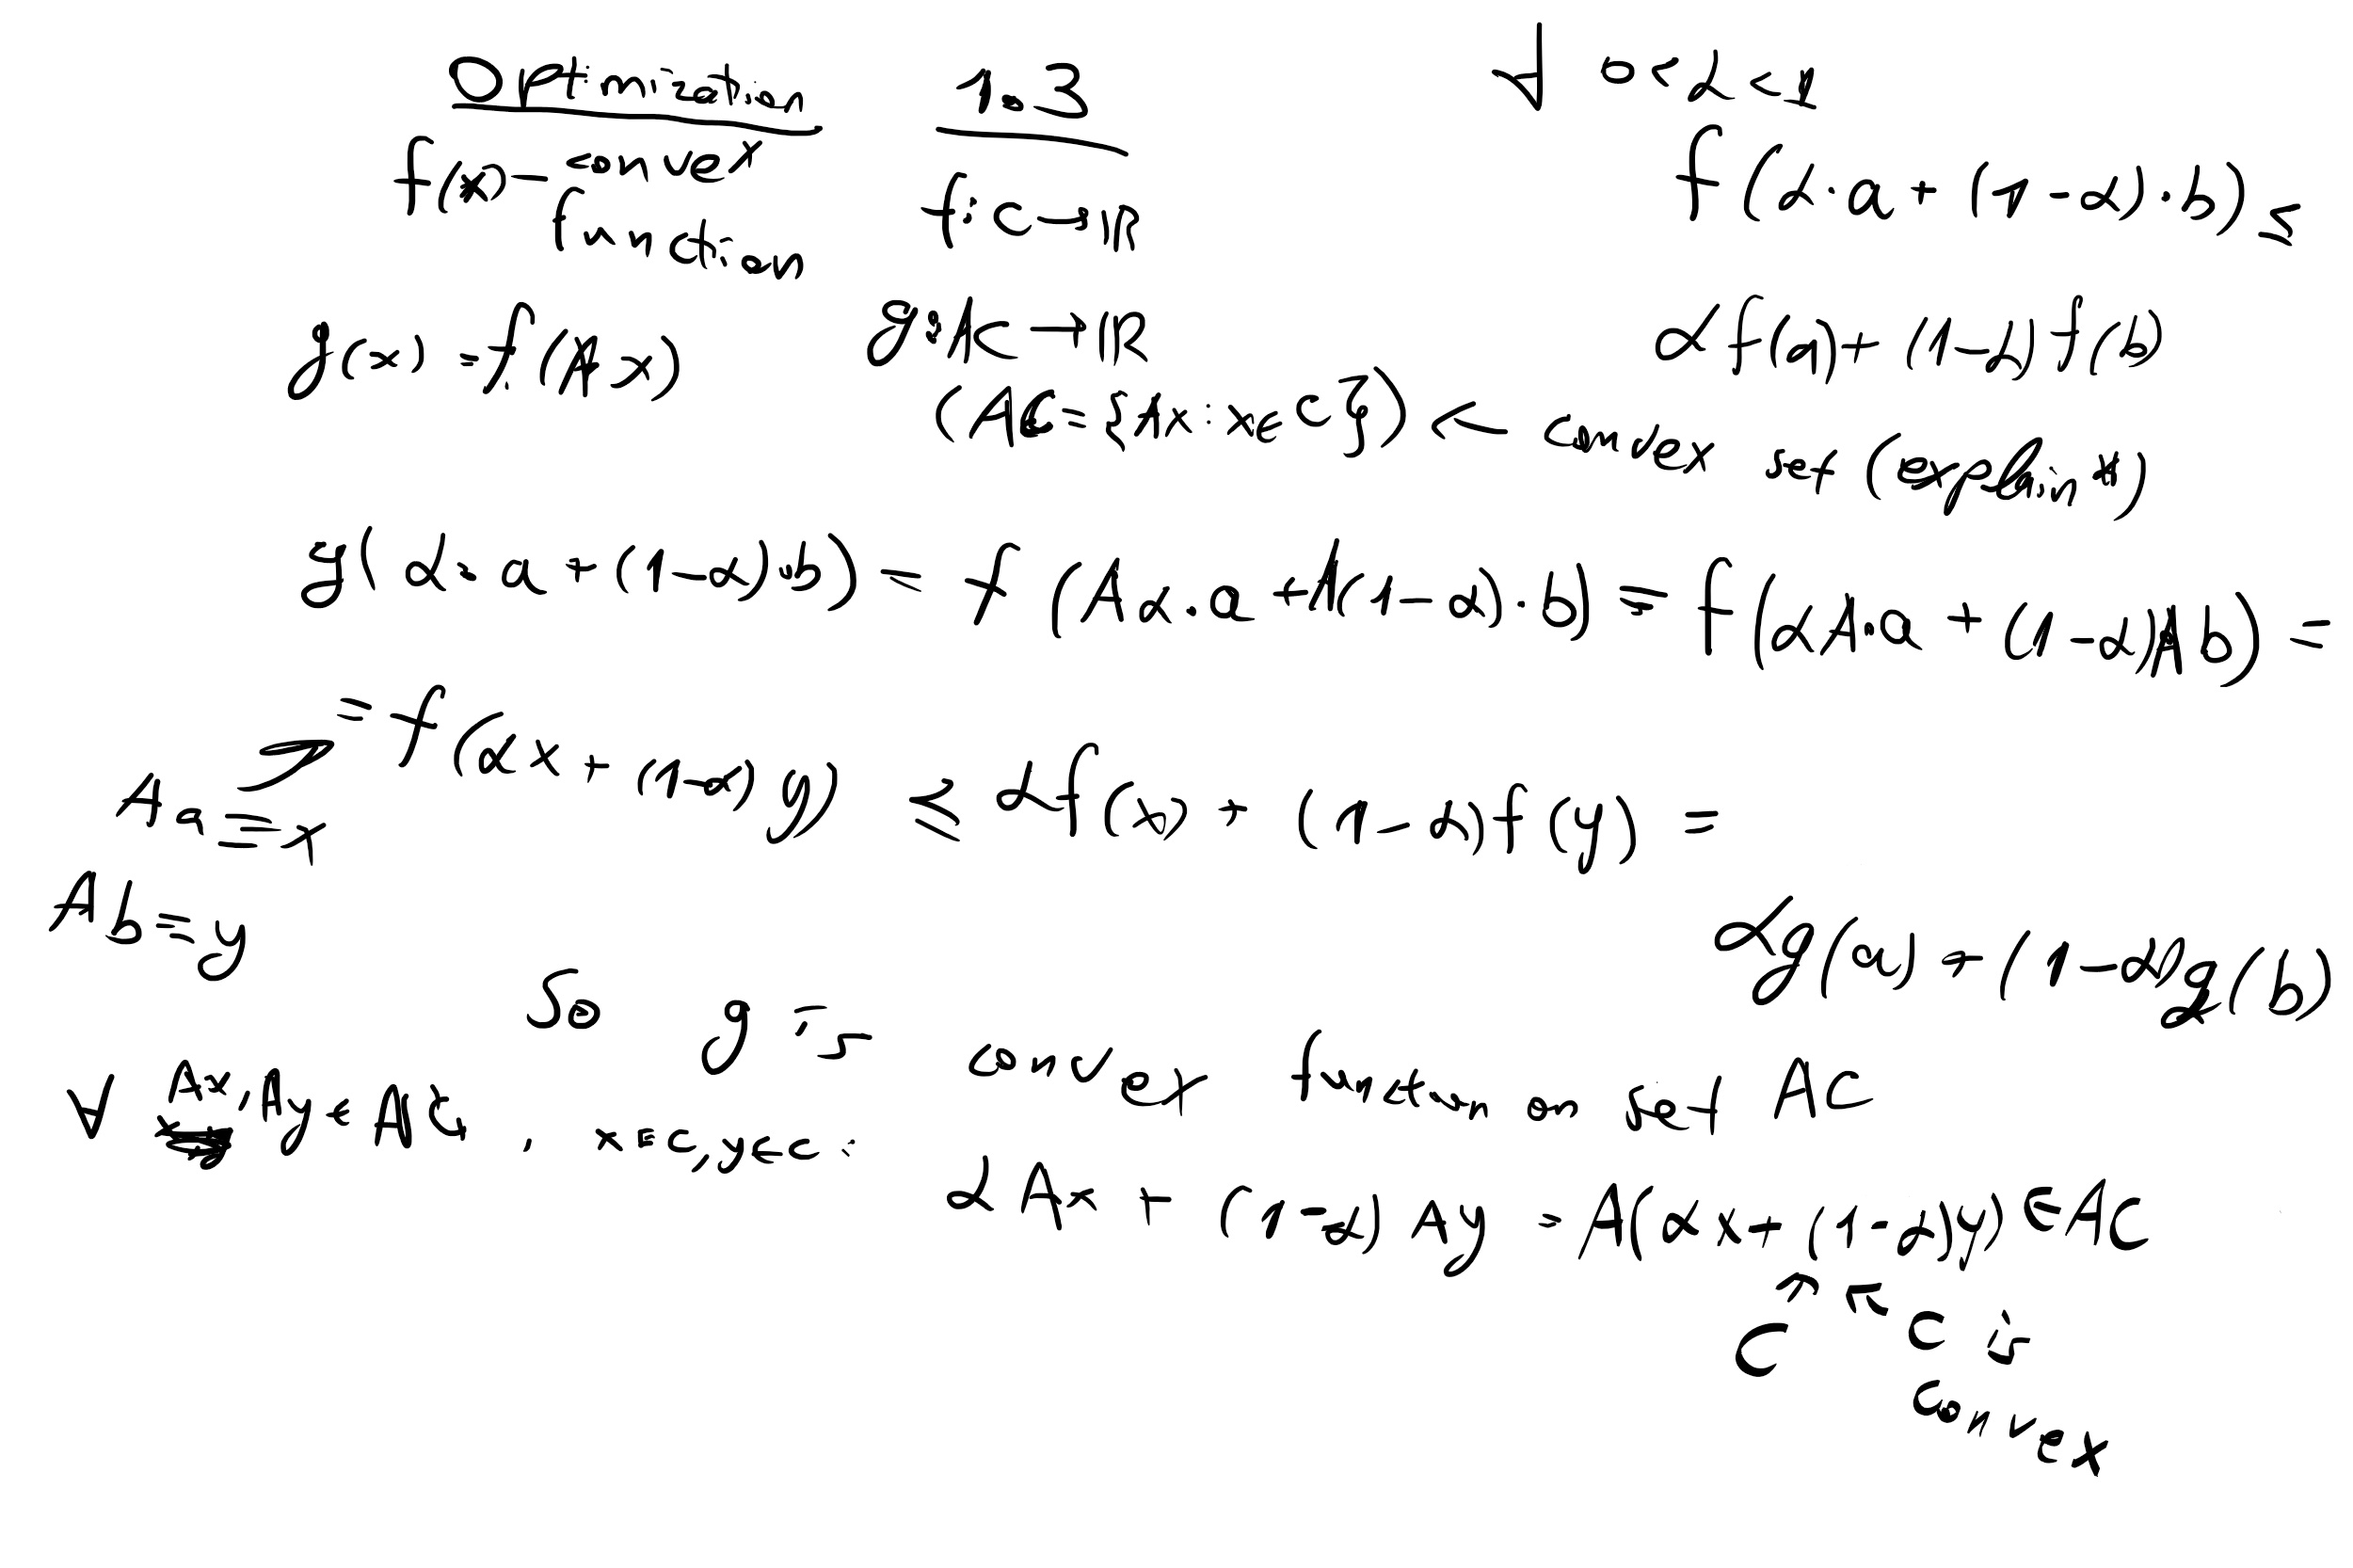 Optimization 1.3 ∀ 0<α<1
f(x) - convex function f: C→ℝ f(α·a+(1-α)·b) ≤
g(x) = f(Ax) g: AC → ℝ αf(a)+(1-α)f(b)
(AC={Ax: x∈C}) ← convex set (explain it)
g(α·a+(1-α)b) = f(Aα·a+A(1-α)·b) = f(αA·a+(1-α)Ab) =
= f(αx+(1-α)y) ≤ αf(x)+(1-α)f(y) =
Aa = x
Ab = y αg(a)+(1-α)g(b)
So g is convex function on set AC
∀ Ax, Ay ∈ AC, x∈C, y∈C:
αAx+(1-α)Ay = A(αx+(1-α)y) ∈ AC
C C is
convex